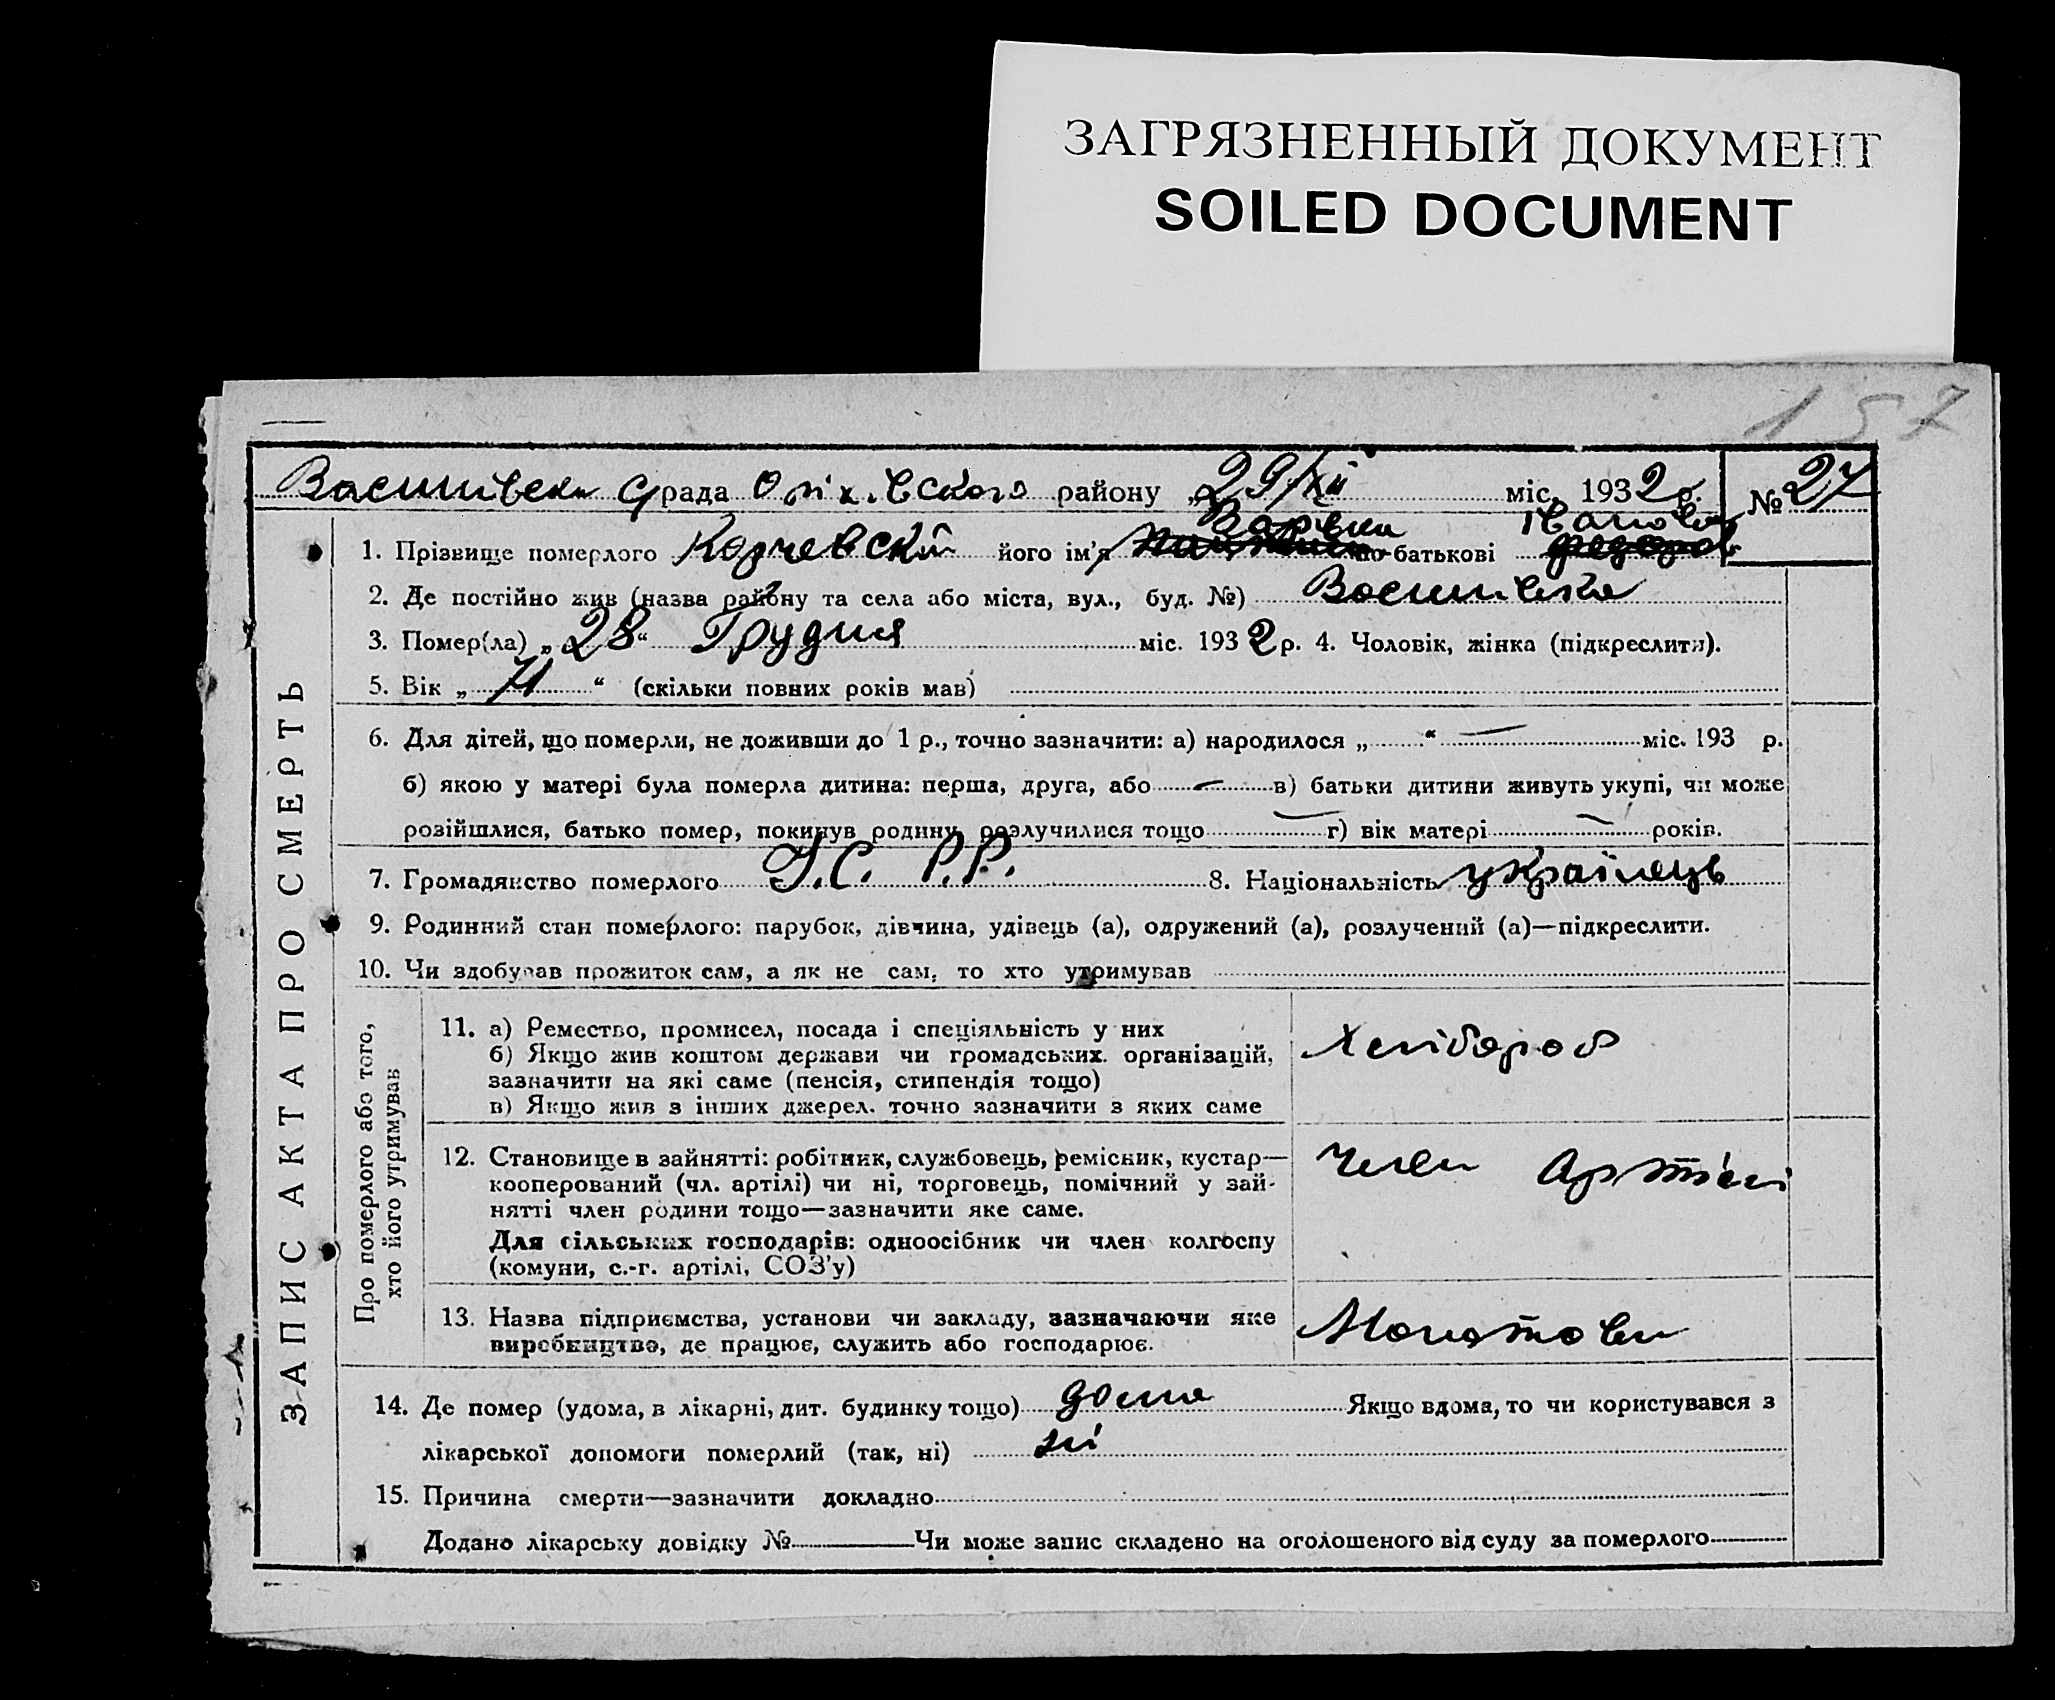 ЗАГРЯЗНЕННЫЙ ДОКУМЕНТ
SOILED DOCUMENT
157
рада Оріхівського району „29/XII міс. 1932 р. № 27
ЗАПИС АКТА ПРО СМЕРТЬ
1. Прізвище померлого Корчевский його ім'я по-батькові Іванов
2. Де постійно жив (назва району та села або міста, вул., буд. №)
3. Помер(ла) „28“ Грудня міс. 1932 р. 4. Чоловік, жінка (підкреслити).
5. Вік „71“ (скільки повних років мав)
6. Для дітей, що померли, не доживши до 1 р., точно зазначити: а) народилося „ “ — міс. 193 р.
б) якою у матері була померла дитина: перша, друга, або — в) батьки дитини живуть укупі, чи може
розійшлися, батько помер, покинув родину, розлучилися тощо — г) вік матері — років.
7. Громадянство померлого У.С.Р.Р. 8. Національність українець
9. Родинний стан померлого: парубок, дівчина, удівець (а), одружений (а), розлучений (а)—підкреслити.
10. Чи здобував прожиток сам, а як не сам, то хто утримував
Про померлого або того,
хто його утримував
11. а) Ремество, промисел, посада і спеціяльність у них
б) Якщо жив коштом держави чи громадських організацій,
зазначити на які саме (пенсія, стипендія тощо)
в) Якщо жив з інших джерел, точно зазначити з яких саме
Хлібороб
12. Становище в зайнятті: робітник, службовець, ремісник, кустар—
кооперований (чл. артілі) чи ні, торговець, помічний у зай-
нятті член родини тощо—зазначити яке саме.
Для сільських господарів: одноосібник чи член колгоспу
(комуни, с.-г. артілі, СОЗ'у)
Член Артілі
13. Назва підприємства, установи чи закладу, зазначаючи яке
виробництво, де працює, служить або господарює.
14. Де помер (удома, в лікарні, дит. будинку тощо) дома Якщо вдома, то чи користувався з
лікарської допомоги померлий (так, ні) ні
15. Причина смерти—зазначити докладно
Додано лікарську довідку № Чи може запис складено на оголошеного від суду за померлого